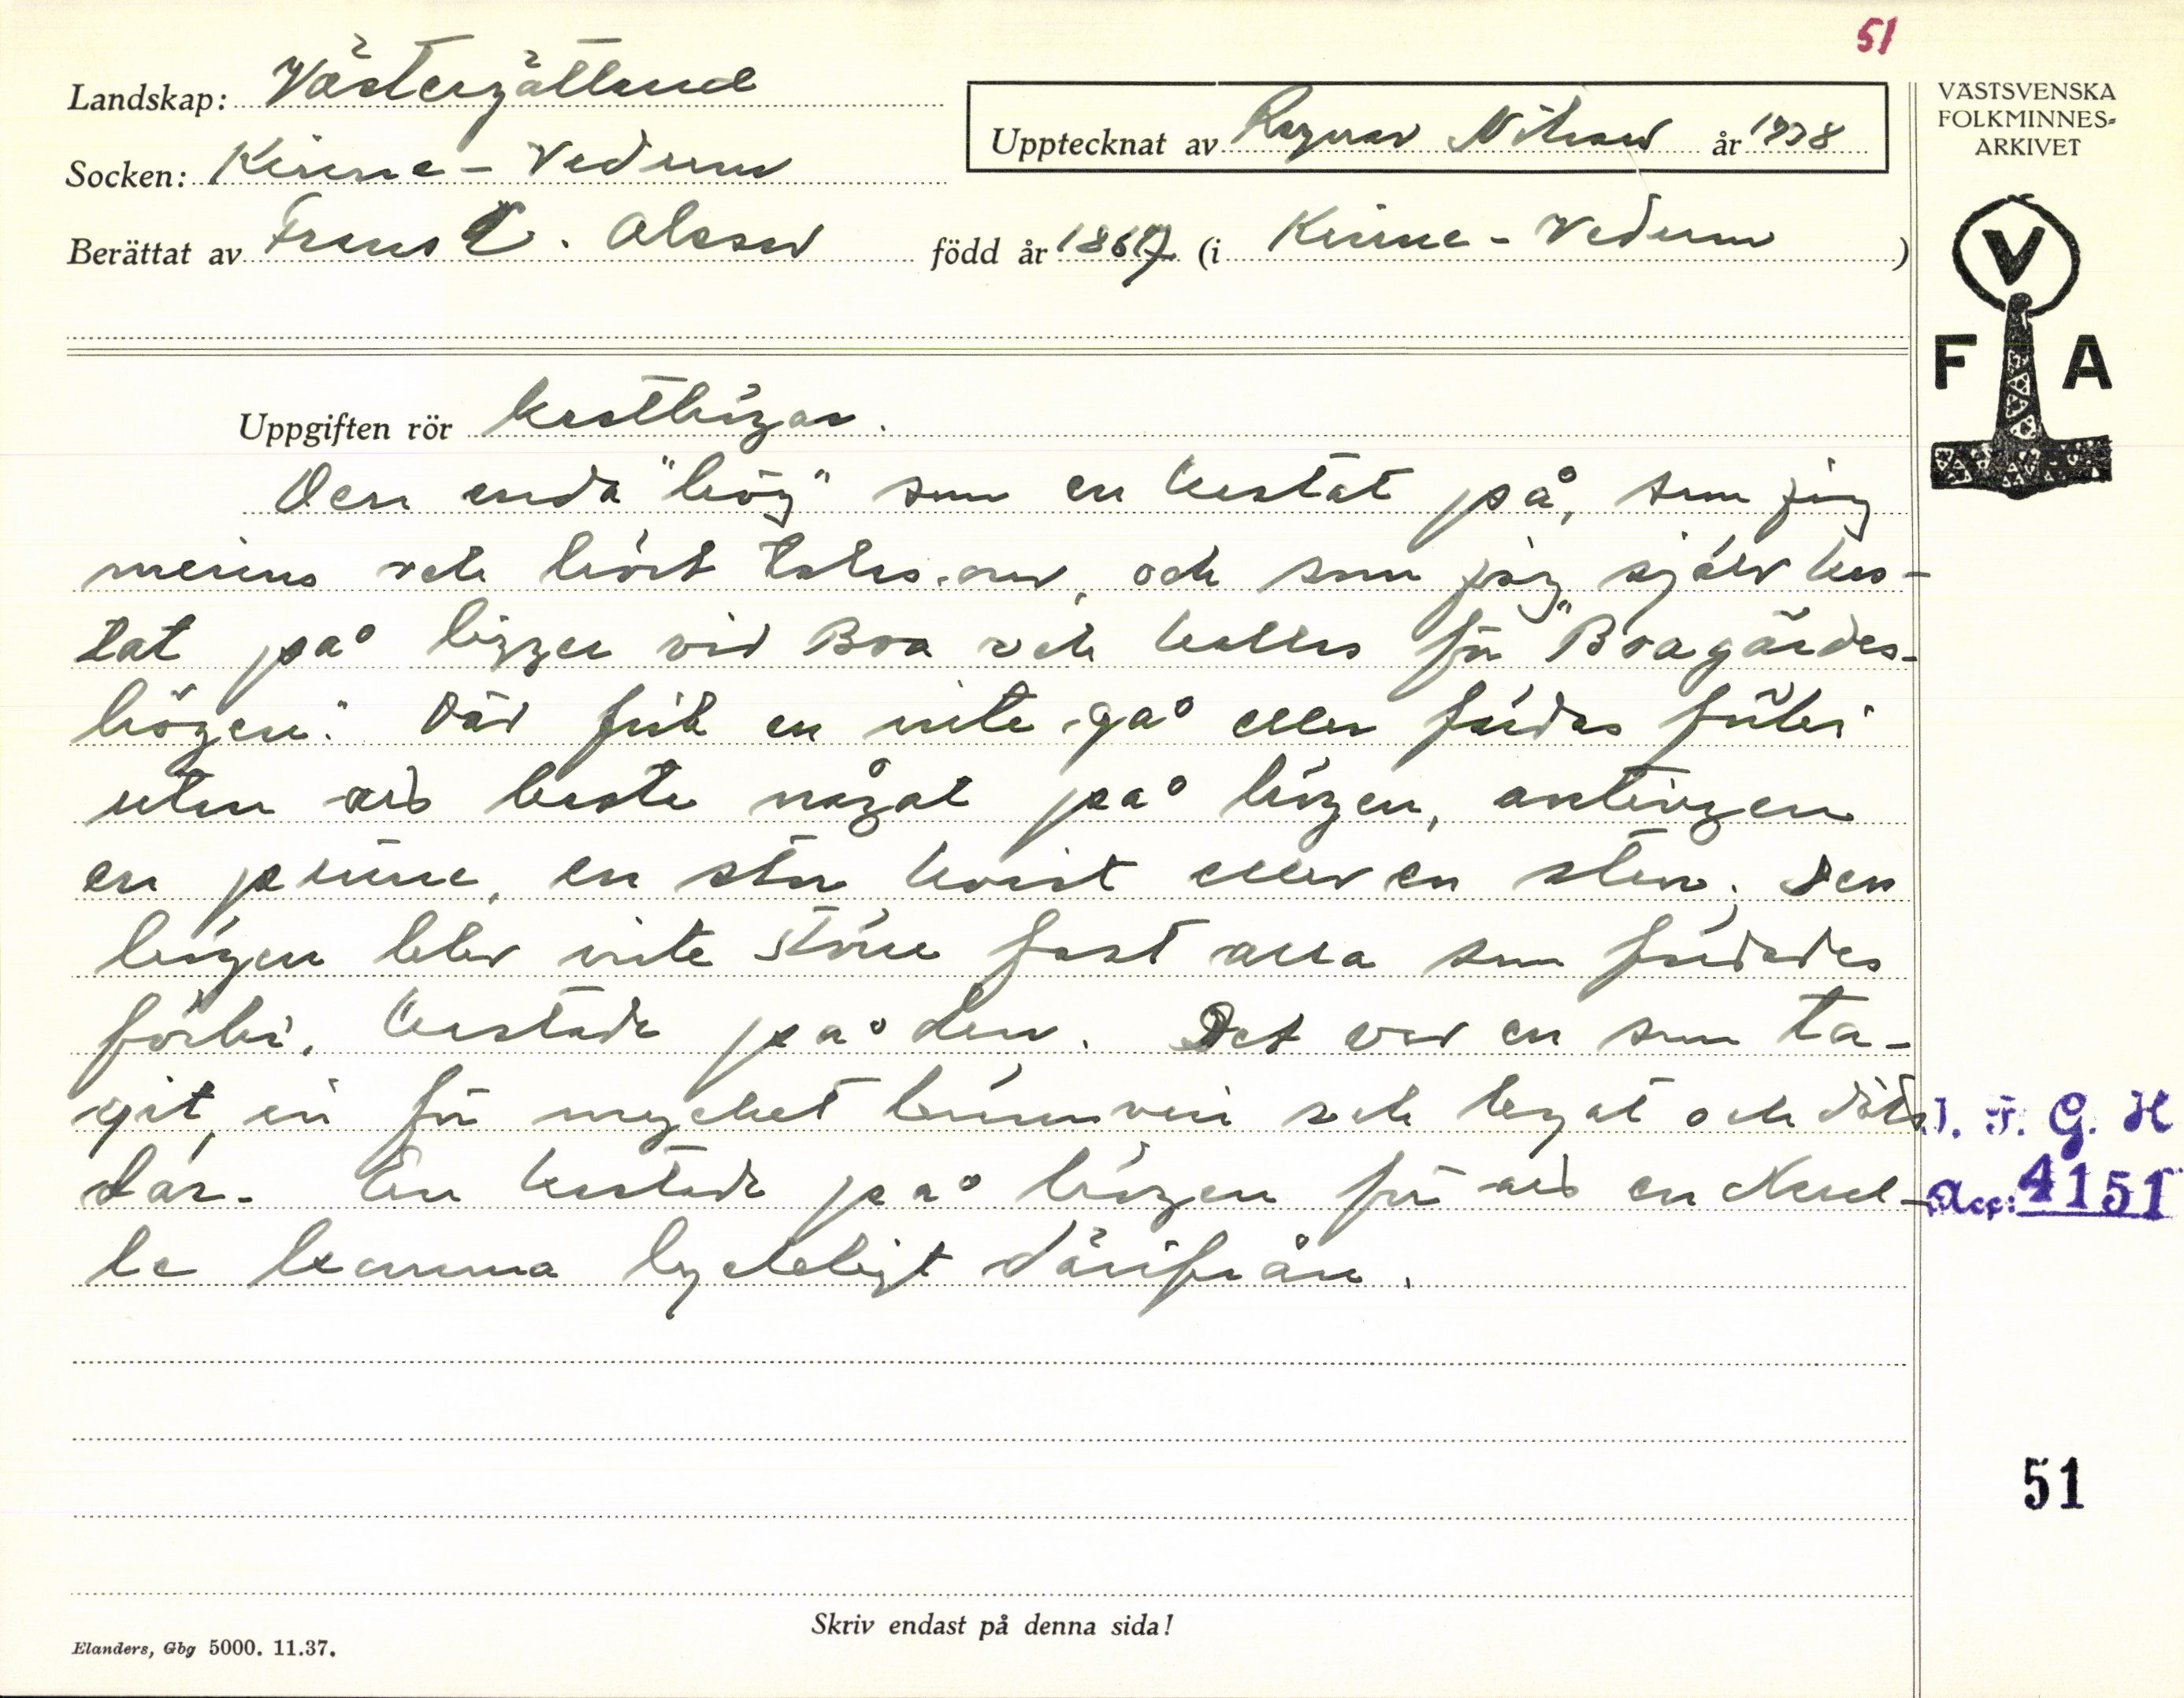 51
Landskap: Västergötland
Socken: Kinne-Vedum
Upptecknat av Ragnar Nilsson år 1938
Berättat av Frans E. Olsson född år 1867 (i Kinne-Vedum)
VÄSTSVENSKA
FOLKMINNES=
ARKIVET
V
F A
Uppgiften rör kasthögar.
Den enda "hög" som en kastat på, som jag
minns och hört talas om, och som jag själv kas-
tat på ligger vid Boa och kallas för "Boagärdes-
högen". Där fick en inte gå eller färdas förbi
utan att kasta något på högen, antingen
en pinne, en stor kvist eller en sten. Den
högen blev inte större fast alla som färdades
förbi, kastade på den. Det var en som ta-
git in för mycket brännvin och legat och dött
där. En kastade på högen för att en skul-
le komma lyckligt därifrån.
I. F. G. H
Acc: 4151
51
Skriv endast på denna sida!
Elanders, Gbg 5000. 11.37.